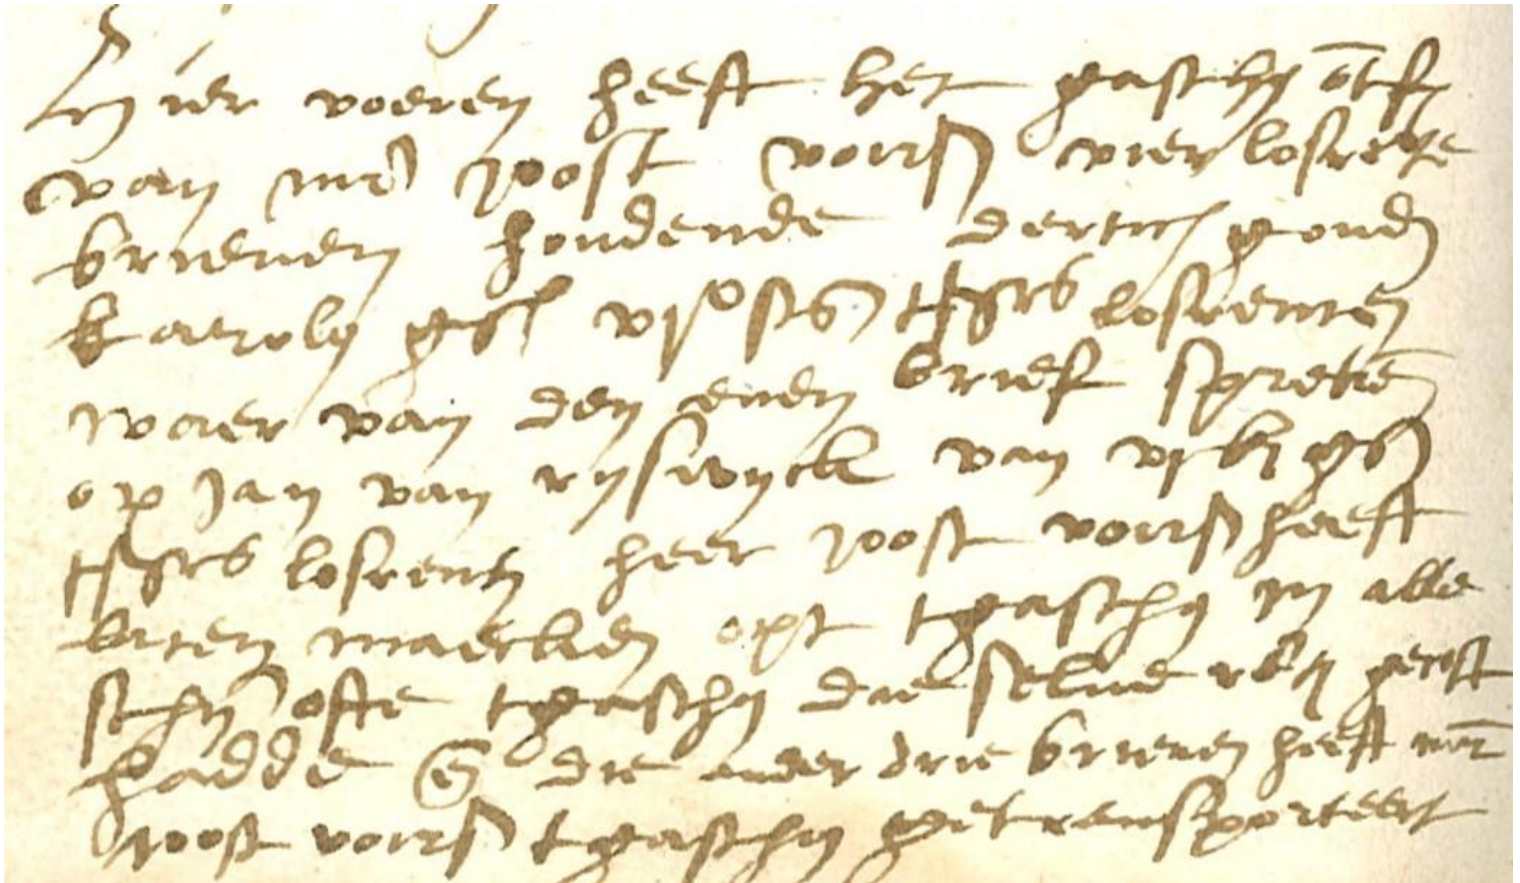 Hier voeren heeft het gasthy ōtf
van mr Joost voirs vier losrete
brieven houdende dertich goud
karoly gls vj st tsjrs losrenten
waer van den enen brief sprekē
op Jan van rijswyck van vj k gls
tsjrs losrenten heer Joost voirs heeft
laten maecken opt tgasthy in alle
schyn ofte tgasthy die selve rēn gecoft
hadde En die ander drie brieven heeft mr
Joost voirs tgasthy getransporteert